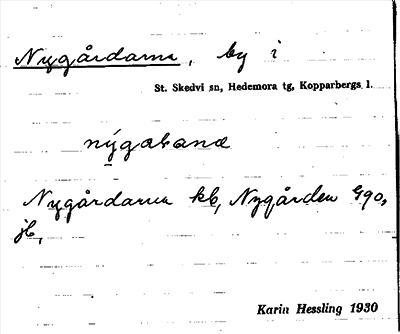 Nygårdarna, by i
St. Skedvi sn, Hedemora tg, Kopparbergs l.
Nygårdarna kb, Nygården G90,
jb,
Karin Hessling 1930